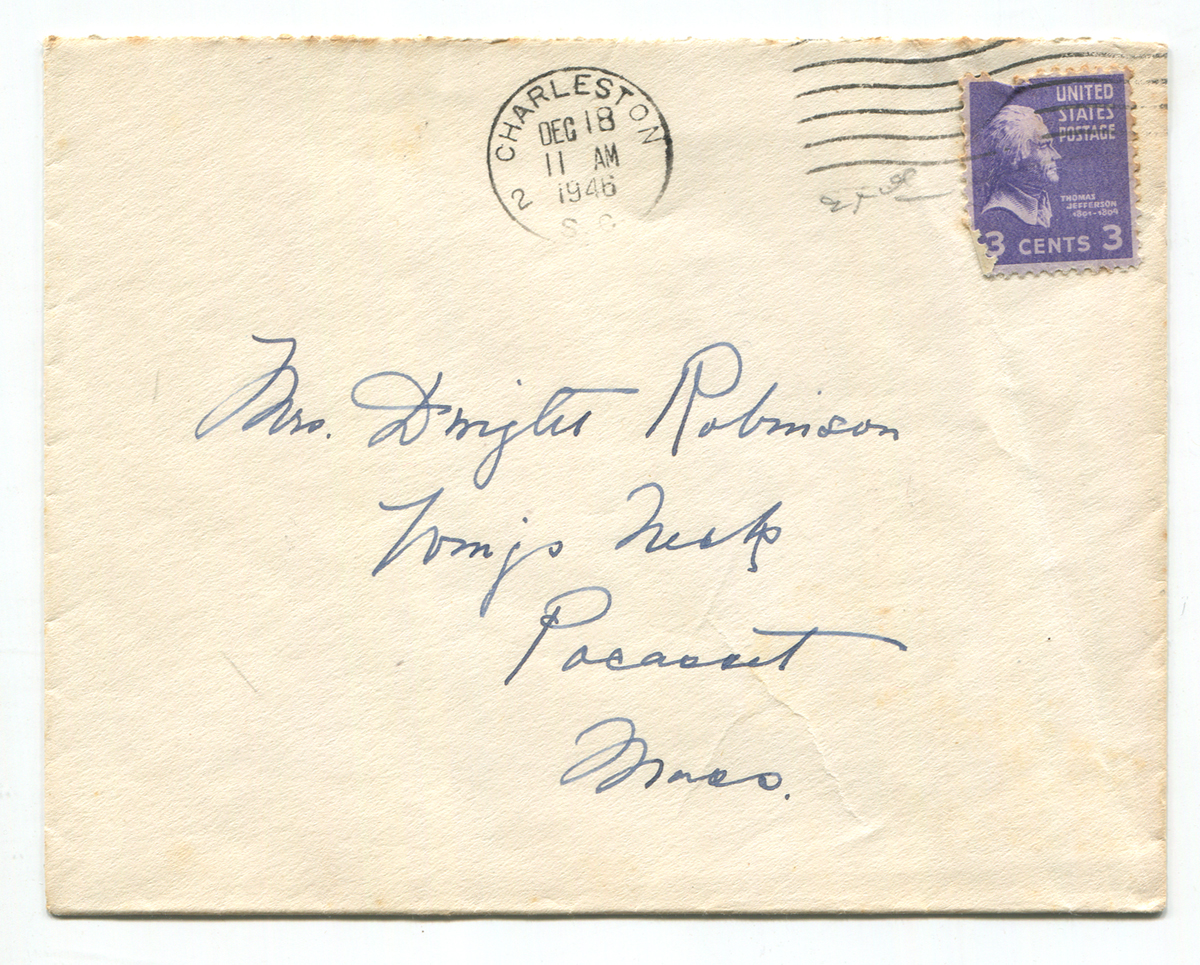 2 CHARLESTON
DEC 18
11 AM
1946
S. C.
UNITED
STATES
POSTAGE
THOMAS
JEFFERSON
1801-1809
3 CENTS 3
Mrs. Dwight Robinson
Wings Neck
Pocasset
Mass.